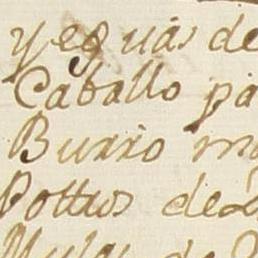 yeguas de
Caballo pa
Burro ma
Pottros de
Mulas de